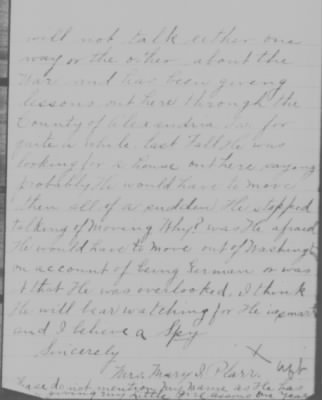 will not talk either one
way or the other about the
War and has been giving
lessons out here through the
County of Alexandria Va. for
quite a while. last Fall He was
looking for a house out here saying
Probably He would have to move
then all of a sudden He stopped
talking of Moving Why? was He afraid
He would have to move out of Washington
on account of being German or was
it that He was overlooked. I think
He will bear watching for He is smart
and I believe a Spy
Sincerely
Mrs. Mary I. Plarr.
Please do not mention my name as He has
giving my Little Girl lessons one year